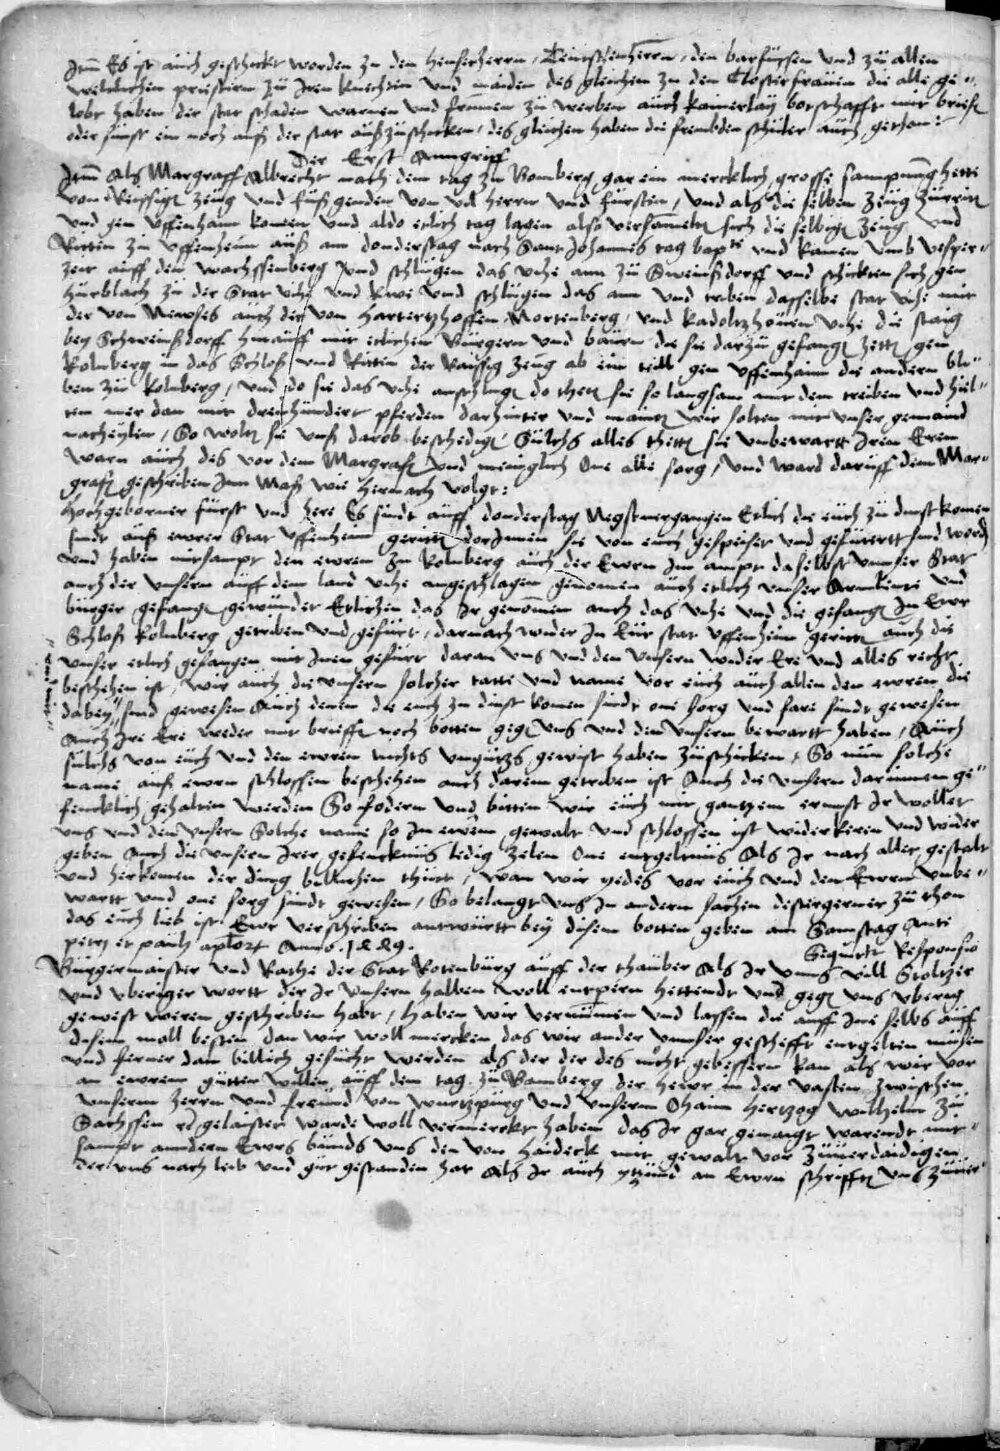 Jtem Es ist auch geschickt worden zu den heuserherrn, Teutschenherrn, den barfussen und zu allen
weltlichen priestern zu Jren knechten und maiden des gleichen zu den Closterfrauen die alle ge-
lobt haben der stat schaden warnen und fromen zu werben auch kainerlay botschafft mit brief
oder sunst ein noch auß der stat außzuschicken, des gleichen haben die frembden schuler auch gethan:
Der Erst Anngriff
Jtem Als Margraff Albrecht nach dem tag zu Bomberg gar ein mercklich grosse sampnung hette
von Reissigem zeug und fußgenden von vil herrn und fursten, und als die selben zeug zurritten
und gen Uffenhaim komen und aldo etlich tag lagen also versamelten sich die selbigen zeug und
Ritten zu Uffenheim auß am donderstag nach Sant Johannis tag bapti und kamen umb vesper-
zeit auff den wachssenberg und schlugen das vihe ann zu Sweinßdorff und schickten sich gen
hurblach zu der Stat vihe und kwe und schlugen das ann und triben dasselbe stat vihe mit
der von Newses auch der von hartertzhoffen Nortenberg, und kadoltzhouen vihe die staig
bey Schweinßdorff hinauff mit etlichen burgern und bauren die sie darzu gefangen hetten gen
Kolmberg in das Schloß und Ritten der Raissig zeug ab ein teill gen Uffenhaim die andern bli-
ben zu Kolmberg, und do sie das vihe anschlugen do theten sie so langsam mit dem treiben und hiel-
ten mer dan mit dreihundert pferden darhinter und mainten wir solten mit unser gemaind
nacheylen, So wolten sie unß darob beschedigen Sulchs alles thetten sie unbewartt Jrem Eren
warn auch des vor dem Margrafen und meniglich One alle sorg, und ward daruff dem Mar-
grafen geschriben Jnn Maß wie hernach volgt:
Hochgeborner furst und here Es sindt auff donderstag Negstvergangen Etlich die euch zu dinst komen
sindt auß ewrer Stat Uffenheim geritten dorJnnen sie von euch gespeiset und gefutertt sind worden
und haben mitsampt den ewren zu Kolmberg auch der Ewrn Jm ampt daselbst unnser Stat
auch der unsern auff dem land vihe angeschlagen genomen auch etlich unser Armleute und
burger gefangen gewundet Etlichen das Jr genomen auch das vihe und die gefangen Jn Ewr
Schloß Kolmberg getriben und gefurt, darnach wider Jn Eur stat Uffenheim geritten auch die
unser etlich gefangen mit Jnen gefurt daran uns und den unsern wider Ere und alles recht
beschehen ist, wir auch die unsern solcher tatte und name vor euch auch allen den ewren die
dabey sind gewesen Auch denen die euch zu dinst komen sindt one sorg und fare sindt gewesen
Auch Jre Ere weder mit brieffen noch botten gegen uns und den unsern bewartt haben, Auch
sulchs von euch und den ewren nichts ungutzs gewist haben zuschicken, So nun solche
name auß ewrn schlossen beschehen auch darein getriben ist Auch die unsern darinnen ge-
fencklich gehalten werden So fodern und bitten wir euch mit gantzem ernnst Jr wollet
uns und den unsern Solche name so Jn ewrm gewalt und schlossen ist widerkeren und wider
geben Auch die unsern Jrer gefencknus ledig zelen One entgeltnus Als Jr nach aller gestalt
und herkomen der ding billichen thutt, wan wir yedes vor euch und den Ewrn unbe-
wartt und one sorg sindt gewesen, So belangt uns Jn andern sachen destergerner zu thon
das euch lieb ist Ewr verschriben antwurtt bey disem botten geben am Samstag Anti
petri et pauli aplorum Anno 1449.
Sequitur Responsio
Burgermaister und Rathe der Stat Rotenburg auff der thauber Als Jr unns vill Stoltzer
und uberiger wortt der Jr unsern halben woll entpern hettendt und gegen uns uberig
gewest weren geschriben habt, haben wir vernumen und lassen die auff Jne selbs auff
disem mall besten dan wir woll mercken das wir ander unnser geschefft entgelten mussen
und ferner dan billich gesucht werden als der der des nicht gebessern kan als wir vor
an ewrem gutten willen auff dem tag zu Bamberg der hewr in der vasten zwischen
unserm herrn und freund von wurtzpurg und unserm Ohaim Hertzog wilhelm zu
Sachssen etc gelaister warde woll vermerckt haben das Jr gar genaigt warendt mit-
sampt andern Ewrs bunds uns den von haideck mit gewalt vor zuuerdaidigen
der uns nach lieb und gut gestanden hat Als Jr auch ytzund an Ewrn schrifften uns zuuer-